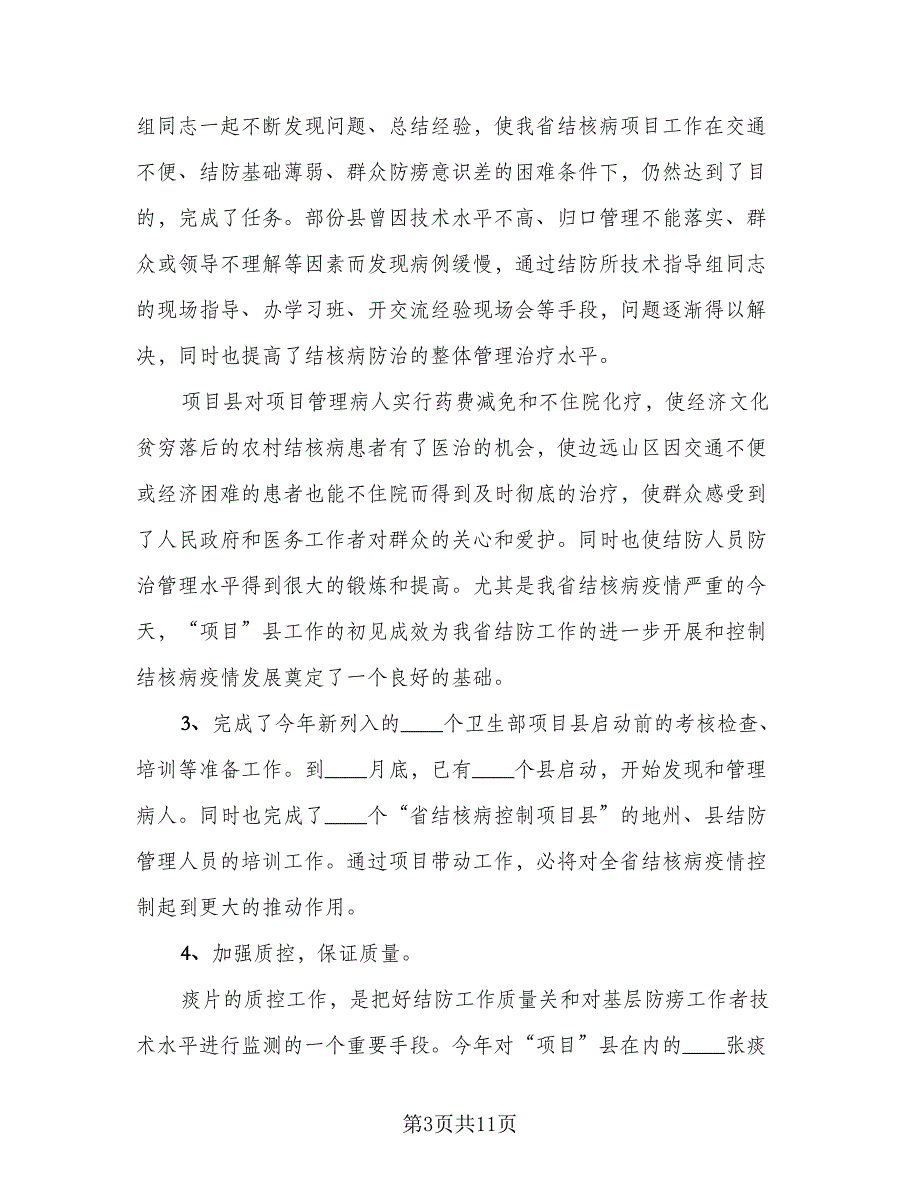 组同志一起不断发现问题、总结经验，使我省结核病项目工作在交通
不便、结防基础薄弱、群众防痨意识差的困难条件下，仍然达到了目
的，完成了任务。部份县曾因技术水平不高、归口管理不能落实、群
众或领导不理解等因素而发现病例缓慢，通过结防所技术指导组同志
的现场指导、办学习班、开交流经验现场会等手段，问题逐渐得以解
决，同时也提高了结核病防治的整体管理治疗水平。
项目县对项目管理病人实行药费减免和不住院化疗，使经济文化
贫穷落后的农村结核病患者有了医治的机会，使边远山区因交通不便
或经济困难的患者也能不住院而得到及时彻底的治疗，使群众感受到
了人民政府和医务工作者对群众的关心和爱护。同时也使结防人员防
治管理水平得到很大的锻炼和提高。尤其是我省结核病疫情严重的今
天，“项目”县工作的初见成效为我省结防工作的进一步开展和控制
结核病疫情发展奠定了一个良好的基础。
3、完成了今年新列入的____个卫生部项目县启动前的考核检查、
培训等准备工作。到____月底，已有____个县启动，开始发现和管理
病人。同时也完成了____个“省结核病控制项目县”的地州、县结防
管理人员的培训工作。通过项目带动工作，必将对全省结核病疫情控
制起到更大的推动作用。
4、加强质控，保证质量。
痰片的质控工作，是把好结防工作质量关和对基层防痨工作者技
术水平进行监测的一个重要手段。今年对“项目”县在内的____张痰
第3页共11页